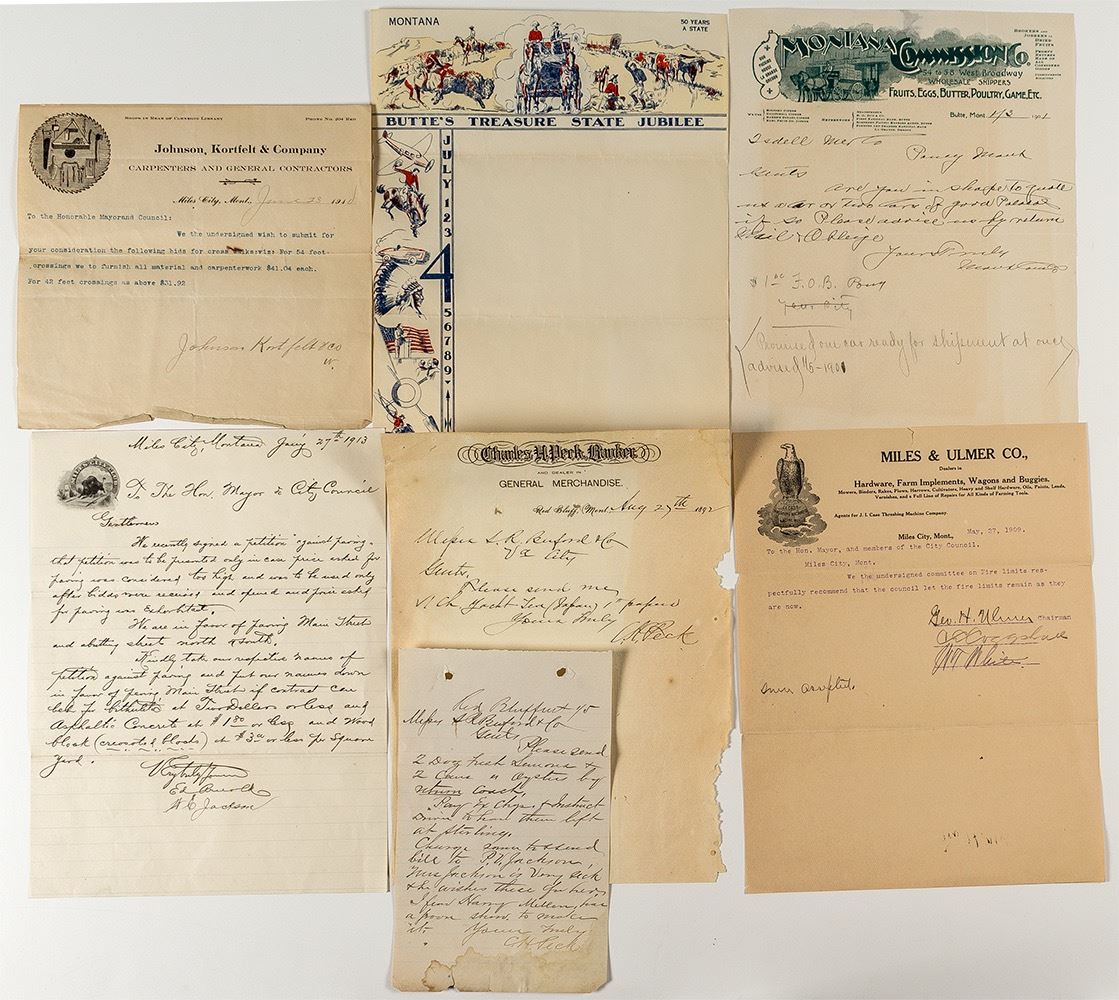 SHOWN IN REAR OF CARNEGIE LIBRARY PHONE NO. 204 RED
Johnson, Kortfelt & Company
CARPENTERS AND GENERAL CONTRACTORS
Miles City, Mont., June 23 191
To the Honorable Mayorand Council:
We the undersigned wish to submit for
your consideration the following bids for cross walks:viz: For 54 feet
crossings we to furnish all material and carpenterwork $41.04 each.
For 42 feet crossings as above $31.92
Johnson Kortfelt & Co
MONTANA
50 YEARS
A STATE
BUTTE'S TREASURE STATE JUBILEE
JULY 1 2 3
4
5 6 7 8 9
MONTANA COMMISSION CO.
54 to 58 West Broadway
WHOLESALE SHIPPERS
FRUITS, EGGS, BUTTER, POULTRY, GAME, ETC.
BROKERS AND
JOBBERS IN
DRIED
FRUITS
Butte, Mont. 1/3 1901
Isdell Mer Co
Poney Mont
Gents
Are you in shape to quote
us a car or two cars of good Potatoes
if so Please advise us by return
Mail & Oblige
Yours Truly
$1 00 F.O.B. Pony
Your City
Promised one car ready for shipment at once
advised 1/5-1901
Miles City, Montana Jan'y 27th 1913
To The Hon. Mayor & City Council
Gentlemen
We recently signed a petition against paving.
that petition was to be presented only in case price asked for
paving was considered too high and was to be used only
after bids were received and opened and price asked
for paving was Exhorbitant.
We are in favor of paving Main Street
and abutting street north & south.
Kindly take our respective names of
petition against paving and put our names down
in favor of paving Main Street if contract can
be let for bithulitic at Two Dollars or less and
Asphaltic Concrete at $1.80 or less and Wood
block (creosoted blocks) at $3.00 or less per Square
Yard.
Very truly yours
Ed Arnold
W. C. Jackson
Charles H. Peck, Banker,
AND DEALER IN
GENERAL MERCHANDISE.
Red Bluff, Mont., Aug 27th 1892
Messrs S. R. Buford & Co
Va City
Gents,
Please send me
1 Ch. Yacht Tea (Japan) 1# papers
Yours truly
CH Peck
Red Bluff
Messrs S R Buford & Co
Gents,
Please send
2 Doz fresh Lemons &
2 Cans Oysters by
coach.
Pay Ex Chgs. & Instruct
Driver to have them left
at Sterling.
Charge same to & send
bill to P. D. Jackson,
Mrs Jackson is Very sick
& he wishes these for her.
I fear Harry Mellen, has
a poor show to make
it. Yours truly
CH Peck
MILES & ULMER CO.,
Dealers in
Hardware, Farm Implements, Wagons and Buggies.
Mowers, Binders, Rakes, Plows, Harrows, Cultivators, Heavy and Shelf Hardware, Oils, Paints, Leads,
Varnishes, and a Full Line of Repairs for All Kinds of Farming Tools.
Agents for J. I. Case Threshing Machine Company
Miles City, Mont., May, 27, 1909.
To the Hon. Mayor, and members of the City Council.
Miles City, Mont.
We the undersigned committee on Fire limits res-
pectfully recommend that the council let the fire limits remain as they
are now.
Geo. H. Ulmer Chairman